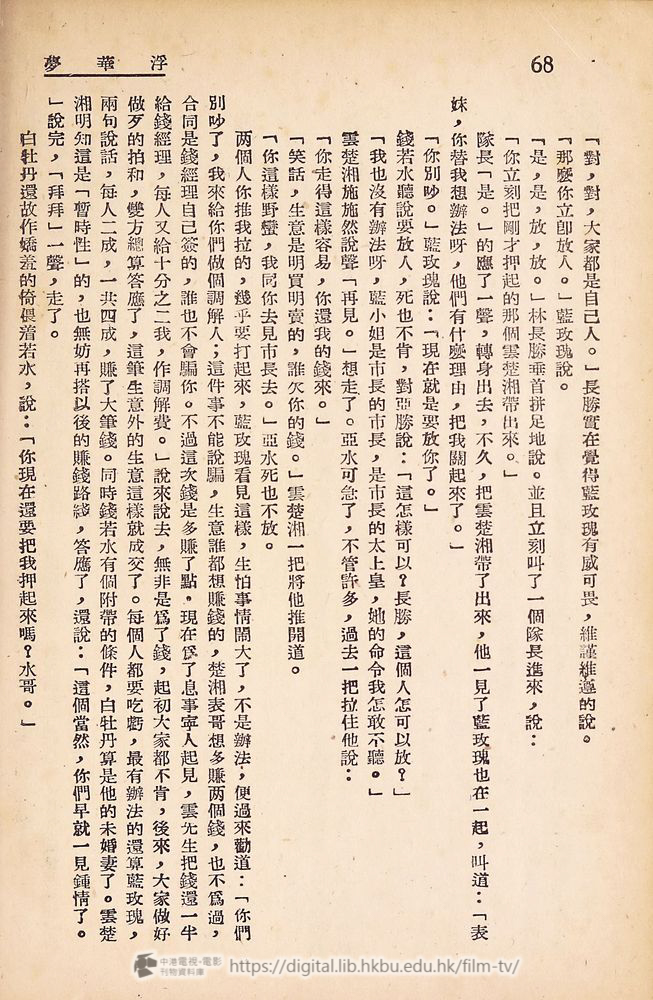 浮華夢
68
「對，對，大家都是自己人。」長勝實在覺得藍玫瑰有威可畏，維謹維遜的說。
「那麼你立卽放人。」藍玫瑰說。
「是，是，放，放。」林長勝垂首拼足地說。並且立刻叫了一個隊長進來，說：
「你立刻把剛才押起的那個雲楚湘帶出來。」
隊長「是。」的應了一聲，轉身出去，不久，把雲楚湘帶了出來，他一見了藍玫瑰也在一起，叫道：「表
妹，你替我想辦法呀，他們有什麼理由，把我關起來了。」
「你別吵。」藍玫瑰說：「現在就是要放你了。」
錢若水聽說要放人，死也不肯，對亞勝說：「這怎樣可以？長勝，這個人怎可以放？」
「我也沒有辦法呀，藍小姐是市長的市長，是市長的太上皇，她的命令我怎敢不聽。」
雲楚湘施施然說聲「再見。」想走了。亞水可急了，不管許多，過去一把拉住他說：
「你走得這樣容易，你還我的錢來。」
「笑話，生意是明買明賣的，誰欠你的錢。」雲楚湘一把將他推開道。
「你這樣野蠻，我同你去見市長去。」亞水死也不放。
两個人你推我拉的，幾乎要打起來，藍玫瑰看見這樣，生怕事情鬧大了，不是辦法，便過來勸道：「你們
別吵了，我來給你們做個調解人；這件事不能說騙，生意誰都想賺錢的，楚湘表哥想多賺两個錢，也不爲過，
合同是錢經理自己簽的，誰也不會騙你。不過這次錢是多賺了點。現在爲了息事寧人起見，雲先生把錢還一半
給錢經理，每人又給十分之二我，作調解費。」說來說去，無非是爲了錢，起初大家都不肯，後來，大家做好
做歹的拍和，雙方總算答應了，這筆生意外的生意這樣就成交了。每個人都要吃虧，最有辦法的還算藍玫瑰，
兩句說話，每人二成，一共四成，賺了大筆錢。同時錢若水有個附帶的條件，白牡丹算是他的未婚妻了。雲楚
湘明知這是「暫時性」的，也無妨再搭以後的賺錢路綫，答應了，還說：「這個當然，你們早就一見鍾情了。
」說完，「拜拜」一聲，走了。
白牡丹還故作嬌羞的倚偎着若水，說：「你現在還要把我押起來嗎？水哥。」
中港電視·電影
刊物資料庫
https://digital.lib.hkbu.edu.hk/film-tv/